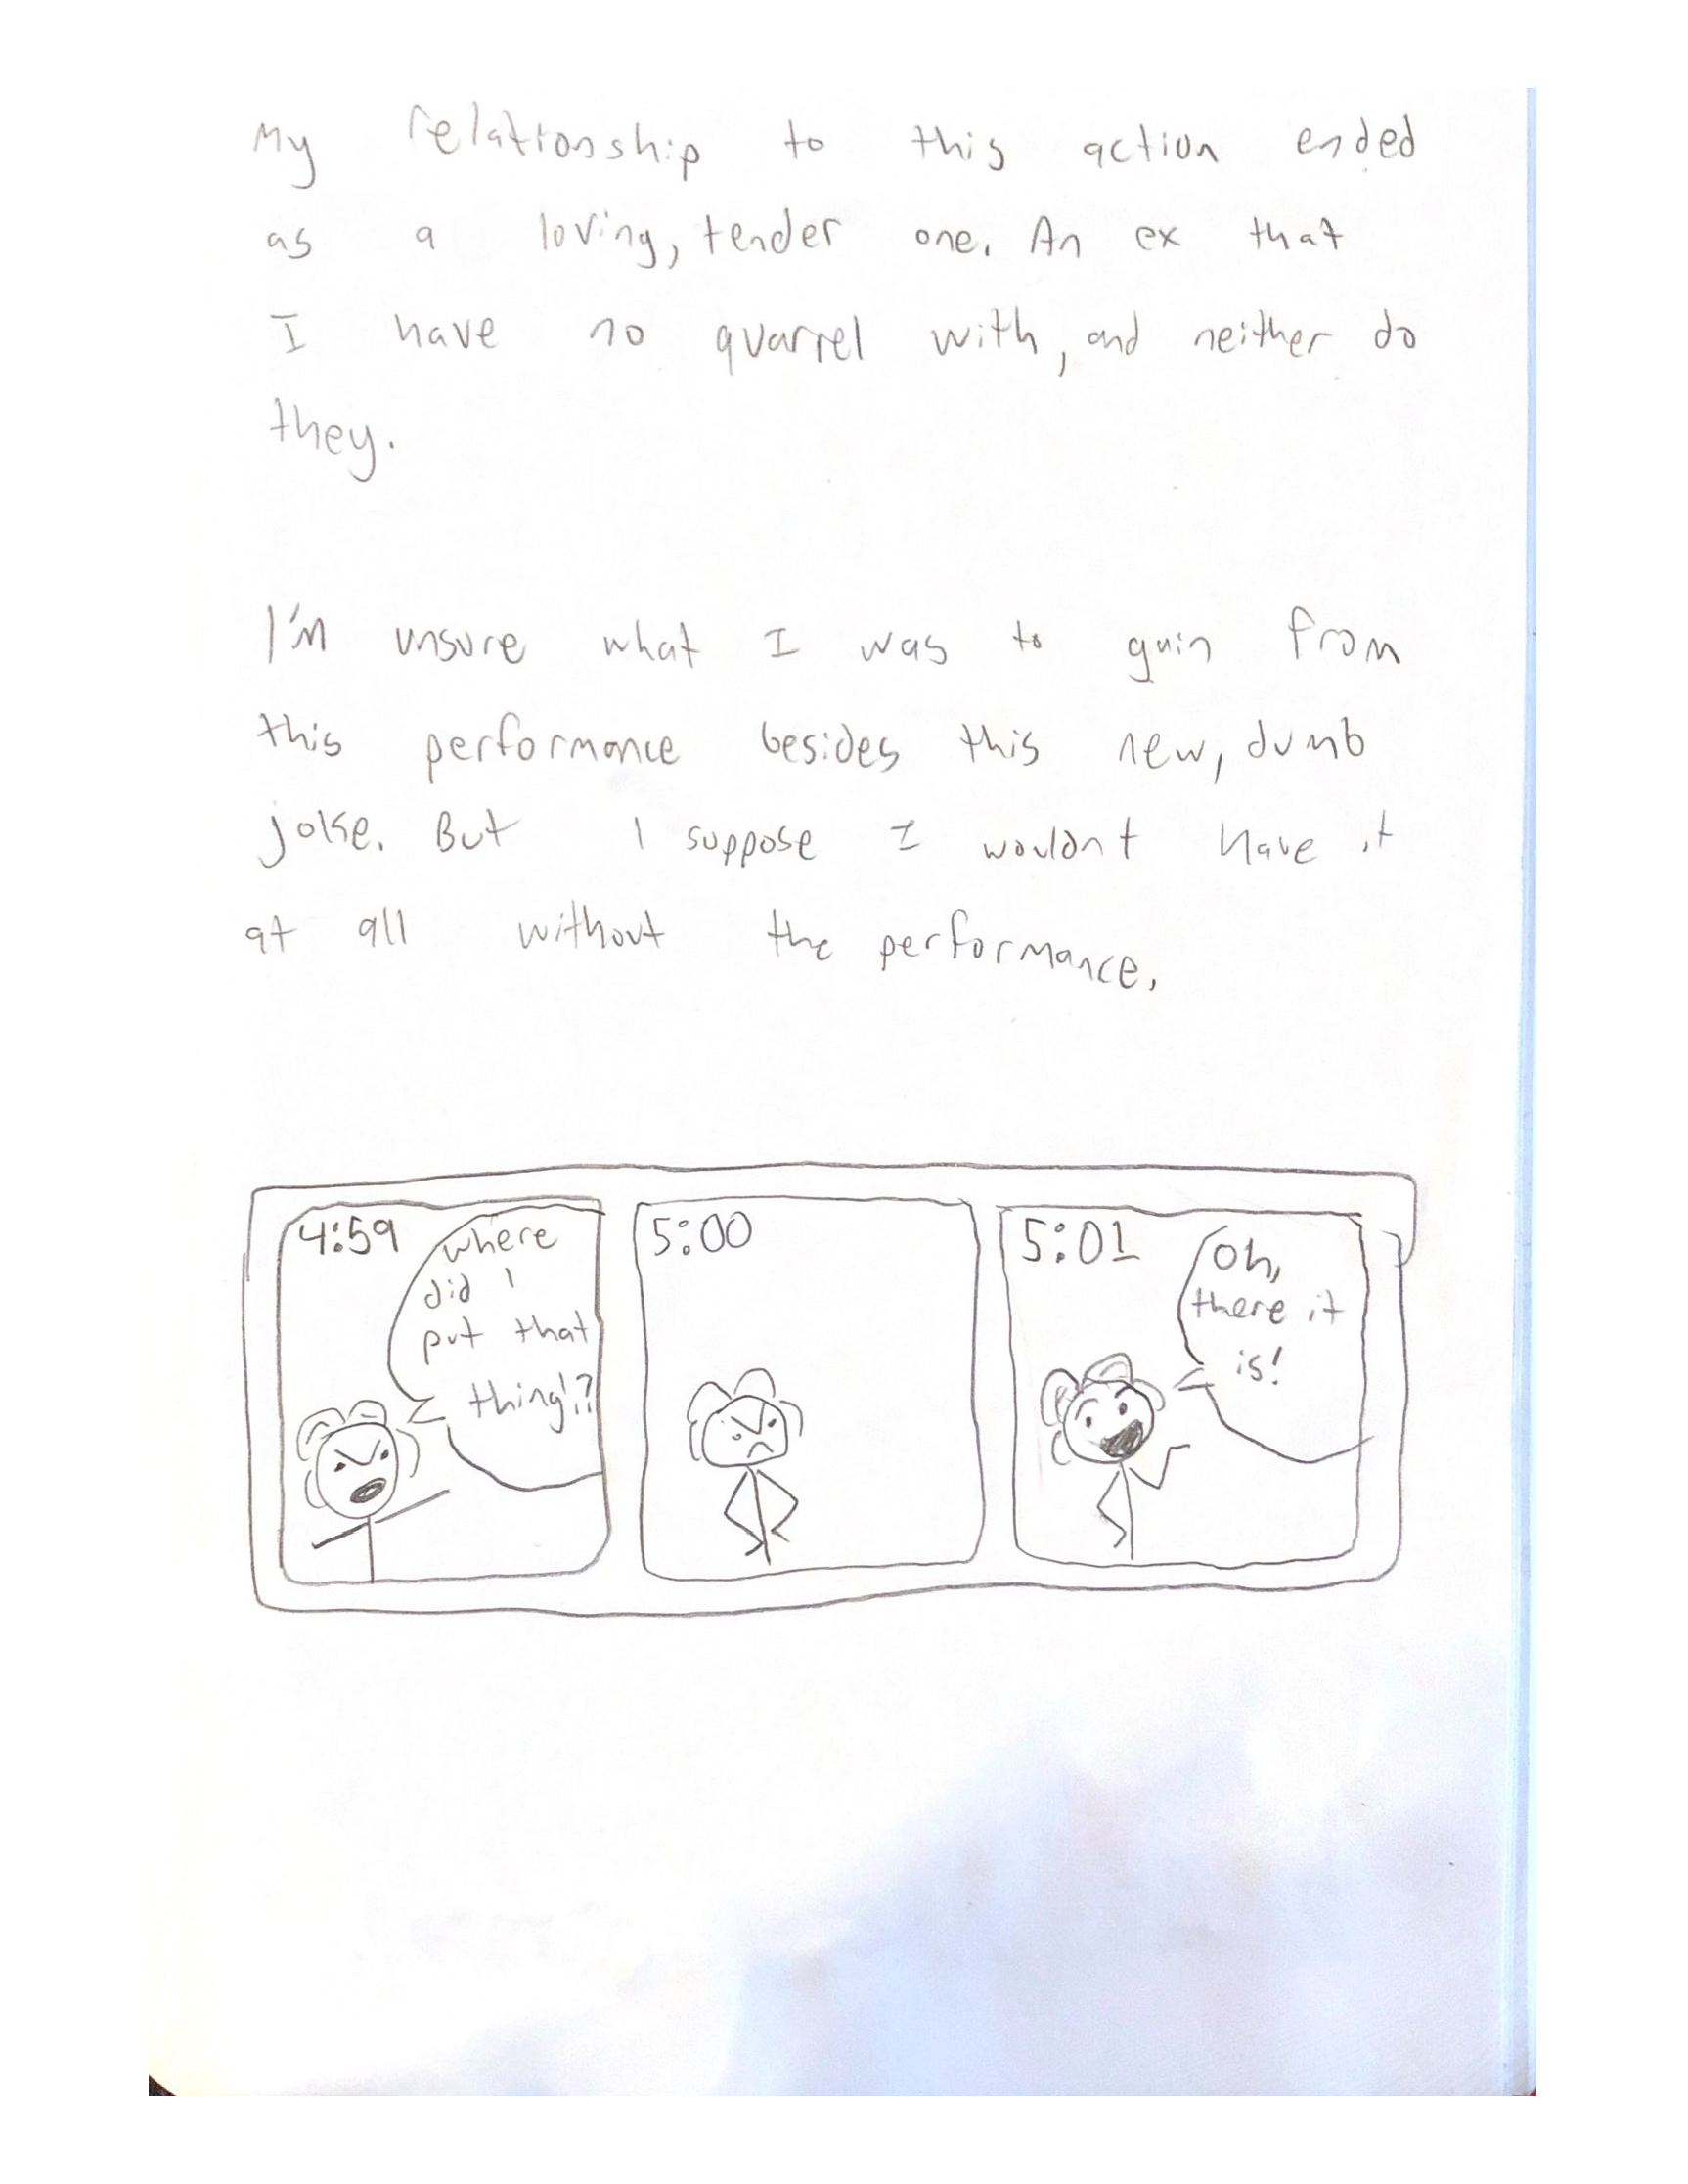 My relationship to this action ended
as a loving, tender one. An ex that
I have no quarrel with, and neither do
they.
I'm unsure what I was to gain from
this performance besides this new, dumb
joke. But I suppose I wouldnt have it
at all without the performance.
4:59
where
did I
put that
thing!?
5:00
5:01
Oh,
there it
is!